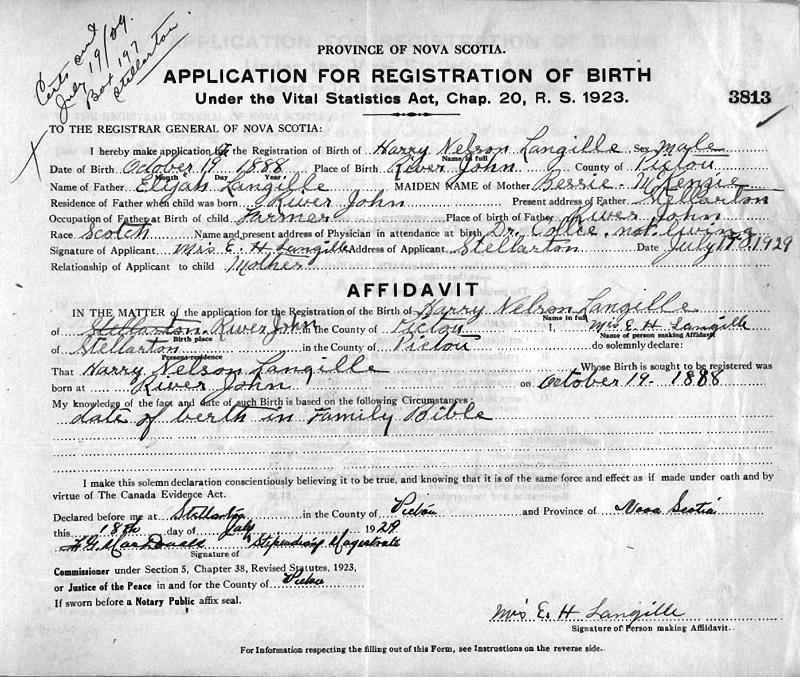 Certs out
July 19/29
Box 197
Stellarton.
PROVINCE OF NOVA SCOTIA.
APPLICATION FOR REGISTRATION OF BIRTH
Under the Vital Statistics Act, Chap. 20, R. S. 1923.
3813
TO THE REGISTRAR GENERAL OF NOVA SCOTIA:
X I hereby make application for the Registration of Birth of Harry Nelson Langille Sex Male
Name in full
Date of Birth October 19 1888 Place of Birth River John County of Pictou
Month Day Year.
Name of Father Elijah Langille MAIDEN NAME of Mother Bessie McKenzie
Residence of Father when child was born River John Present address of Father Stellarton
Occupation of Father at Birth of child Farmer Place of birth of Father River John
Race Scotch Name and present address of Physician in attendance at birth Dr. Collie. not living
Signature of Applicant Mrs E. H Langille Address of Applicant Stellarton Date July 18. 1929
Relationship of Applicant to child Mother
AFFIDAVIT
IN THE MATTER of the application for the Registration of the Birth of Harry Nelson Langille
Name in full
of Stellarton River John in the County of Pictou I, Mrs E. H Langille
Birth place Name of person making Affidavit
of Stellarton in the County of Pictou do solemnly declare:
Present residence
That Harry Nelson Langille Whose Birth is sought to be registered was
born at River John on October 19- 1888
My knowledge of the fact and date of such Birth is based on the following Circumstances:
date of berth in Family Bible
I make this solemn declaration conscientiously believing it to be true, and knowing that it is of the same force and effect as if made under oath and by
virtue of The Canada Evidence Act.
Declared before me at Stellarton in the County of Pictou and Province of Nova Scotia
this 18th day of July 1929
MacDonald Stipendiary Magistrate
Signature of
Commissioner under Section 5, Chapter 38, Revised Statutes, 1923,
or Justice of the Peace in and for the County of Pictou
If sworn before a Notary Public affix seal.
Mrs E. H Langille
Signature of Person making Affidavit.
For Information respecting the filling out of this Form, see Instructions on the reverse side.